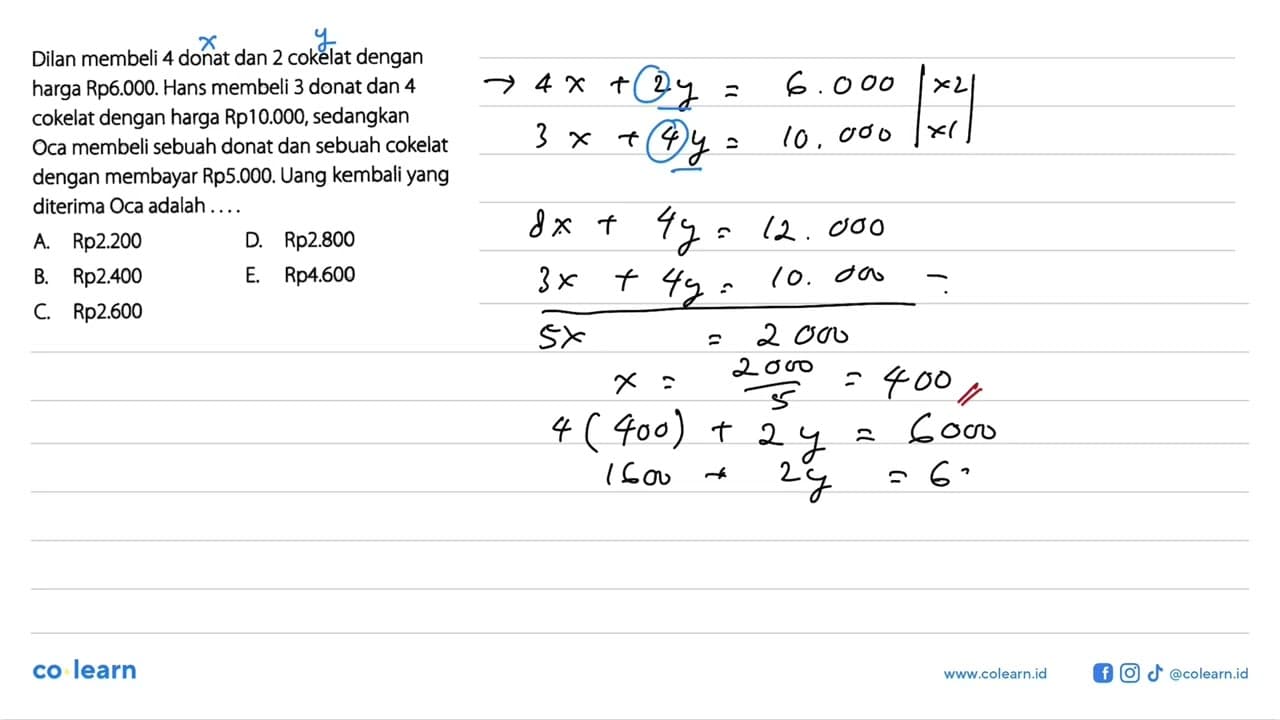 x y
Dilan membeli 4 donat dan 2 cokelat dengan
harga Rp6.000. Hans membeli 3 donat dan 4
cokelat dengan harga Rp10.000, sedangkan
Oca membeli sebuah donat dan sebuah cokelat
dengan membayar Rp5.000. Uang kembali yang
diterima Oca adalah ....
A. Rp2.200 D. Rp2.800
B. Rp2.400 E. Rp4.600
C. Rp2.600
→ 4x + 2y = 6.000 | x2 |
3x + 4y = 10.000 | x1 |
8x + 4y = 12.000
3x + 4y = 10.000 -
5x = 2000
x = 2000/5 = 400 //
4(400) + 2y = 6000
1600 + 2y = 6
co learn
www.colearn.id @colearn.id